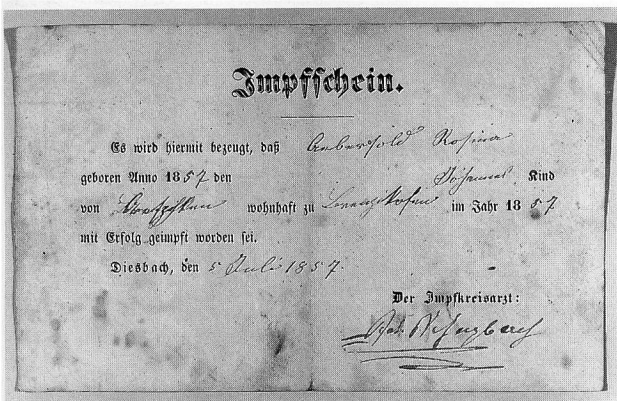 Impfschein.
Es wird hiermit bezeugt, daß Aebersold Rosina
geboren Anno 1857 den Johannes Kind
von wohnhaft zu im Jahr 1857
mit Erfolg geimpft worden sei.
Diesbach, den 5 Juli 1857.
Der Impfkreisarzt: